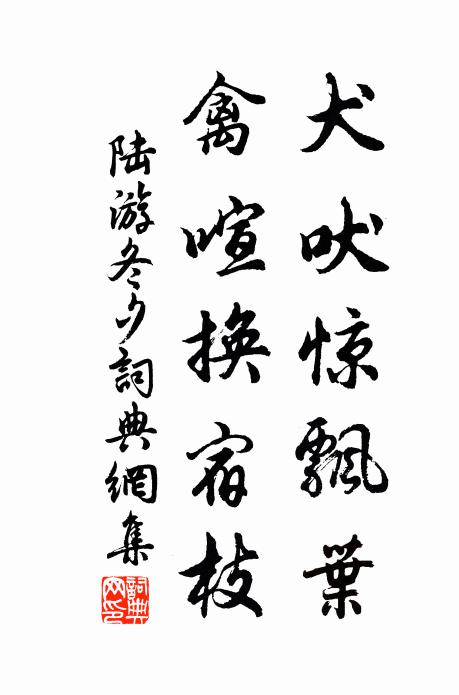 犬吠惊飄葉
禽喧換宿枝
陆游冬夕詞典網集
詞典網印